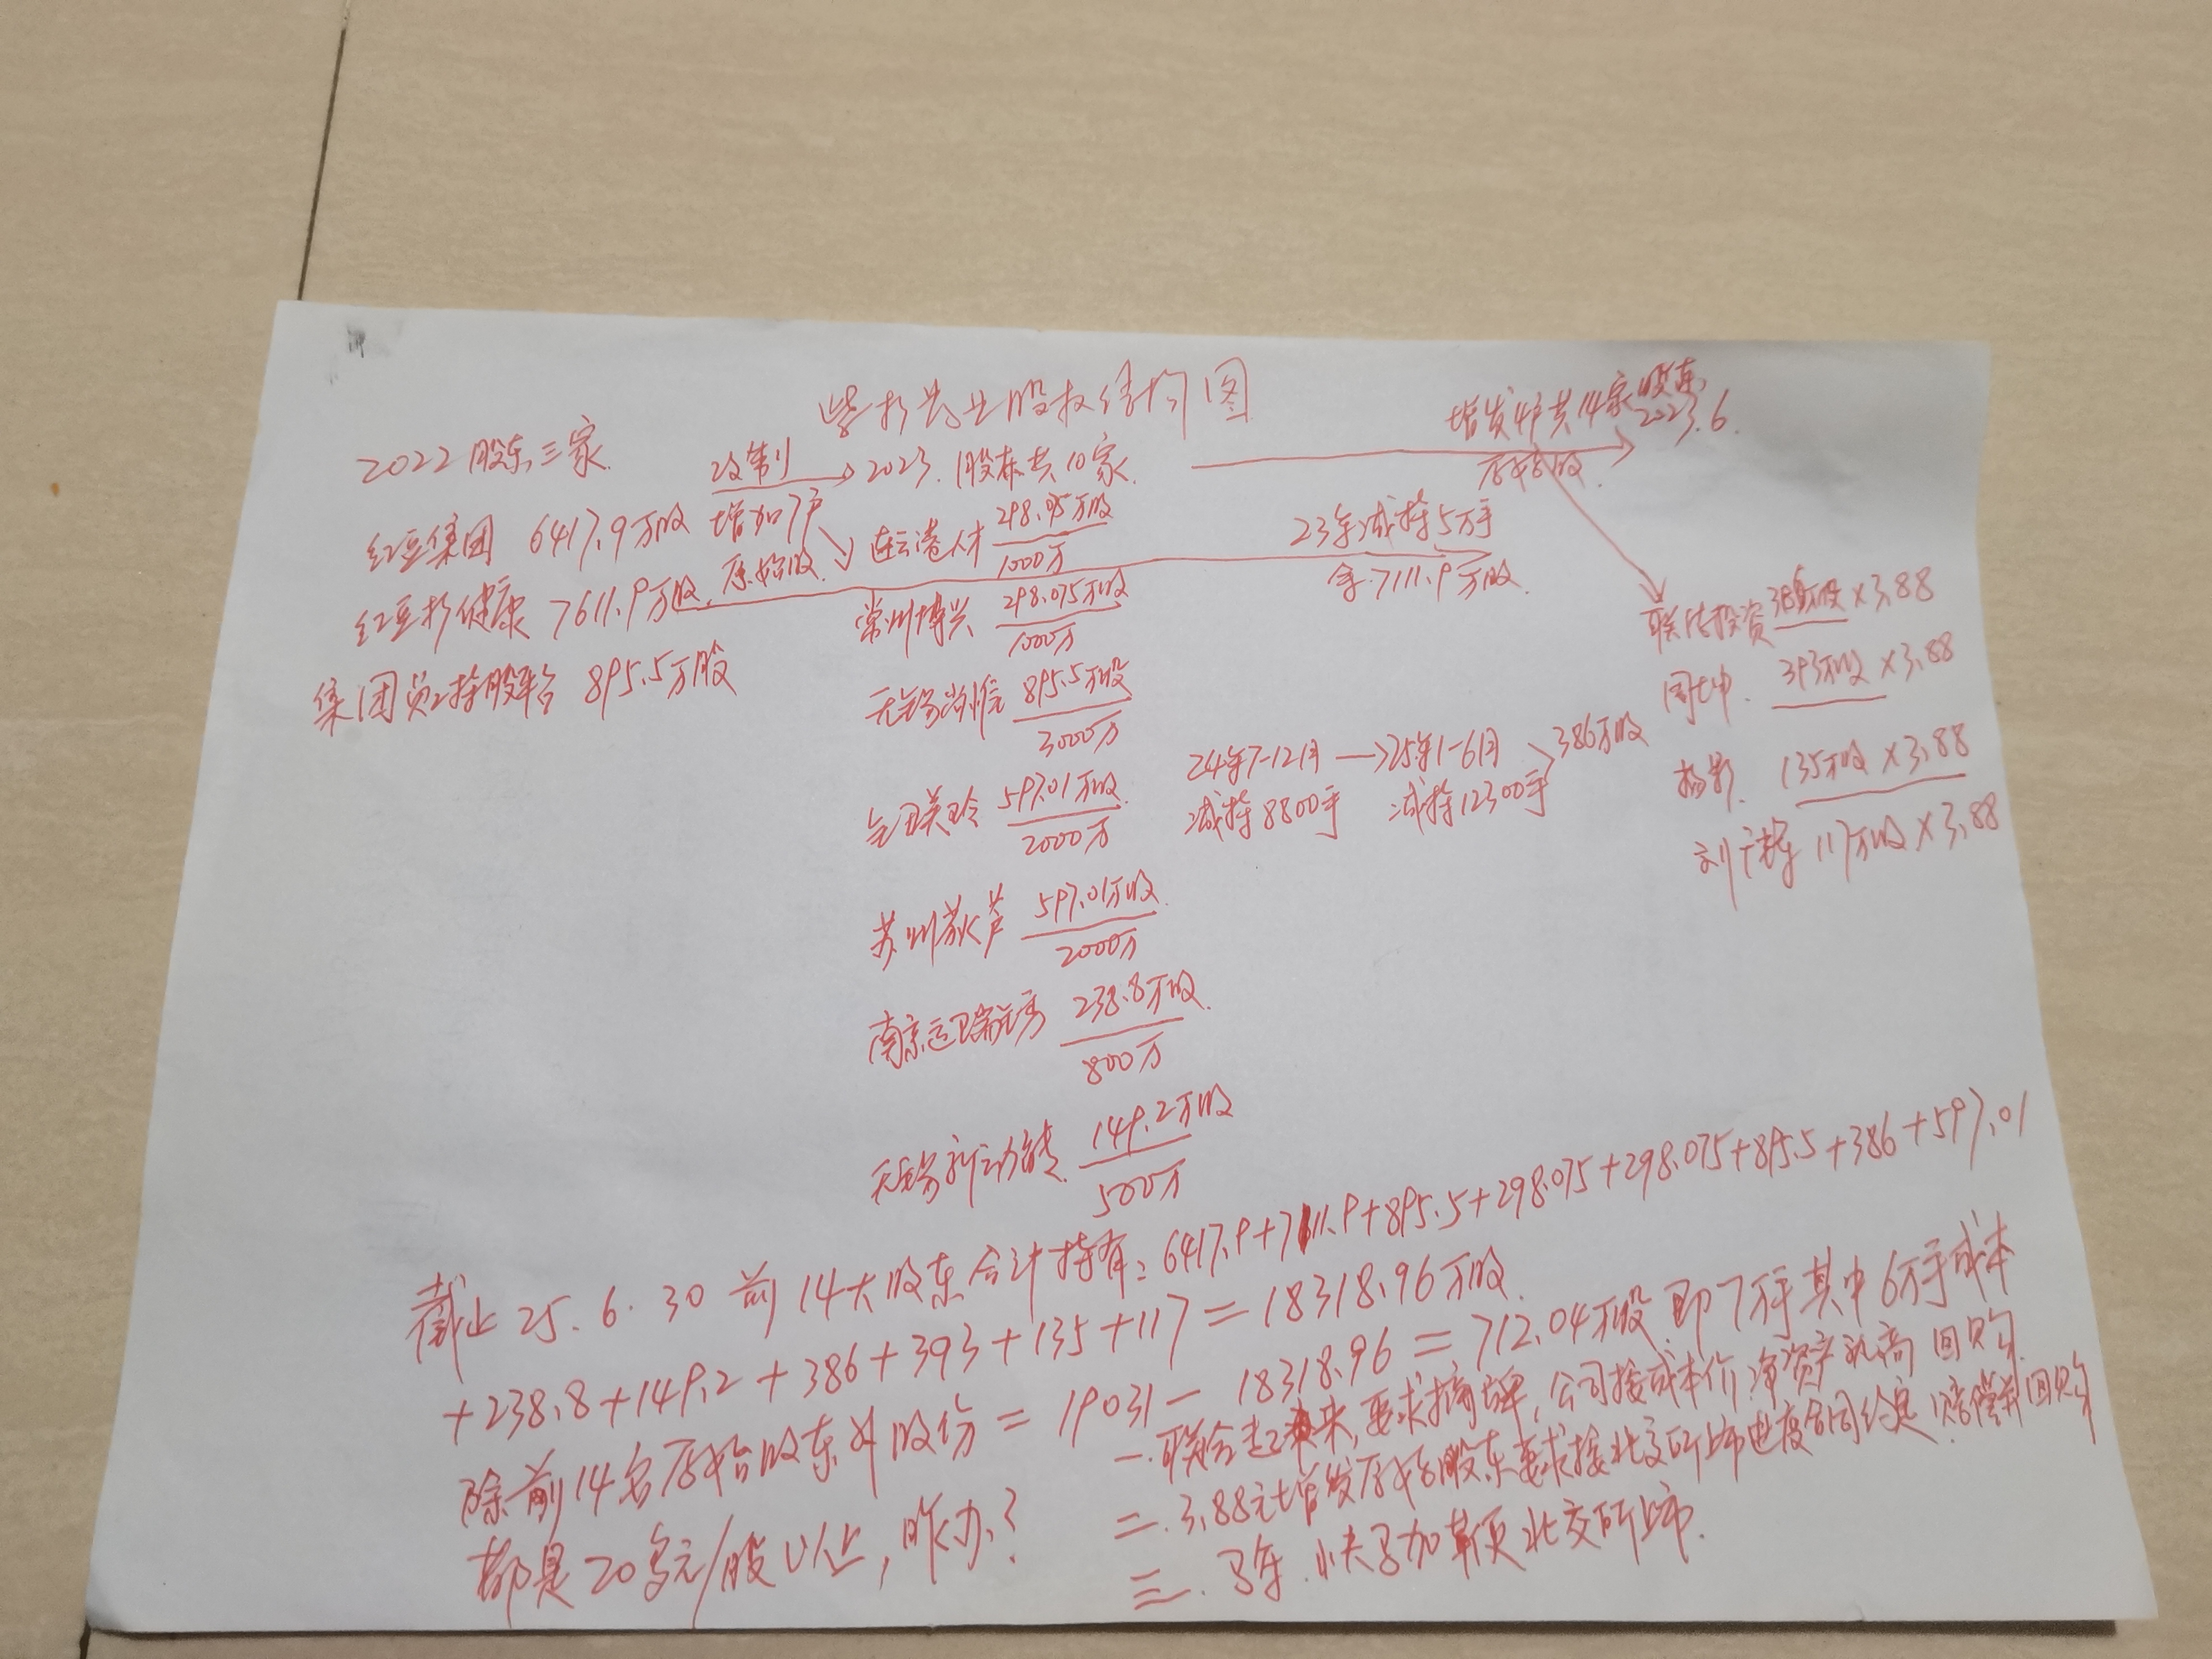 紫杉药业股权结构图
2022股东三家
改制
2023.股东共10家
增发4户共14家股东
2023.6.
原始股
红豆集团 6417.9万股
增加7户
原始股
红豆杉健康 7611.9万股
23年减持5万手
余7111.9万股
集团员工持股平台 895.5万股
连云港人才 298.075万股
1000万
常州博兴 298.075万股
1000万
无锡尚信 895.5万股
3000万
597.01万股
2000万
24年7-12月 → 25年1-6月 386万股
减持8800手 减持12300手
苏州 597.01万股
2000万
南京 238.8万股
800万
无锡新动能 149.2万股
500万
投资 386万股×3.88
393万股×3.88
杨影 135万股×3.88
刘 117万股×3.88
截止25.6.30前14大股东合计持有:6417.9+7111.9+895.5+298.075+298.075+895.5+386+597.01
+238.8+149.2+386+393+135+117=18318.96万股.
除前14名原始股东外股份=19031-18318.96=712.04万股即7万手其中6万手成本
都是20多元/股以上,咋办?
一.联合起来,要求摘牌,公司按成本价净资产孰高回购.
二.3.88元增发原始股东要求按北交所上市进度合同约定赔偿和回购
三.马年.快马加鞭北交所上市.